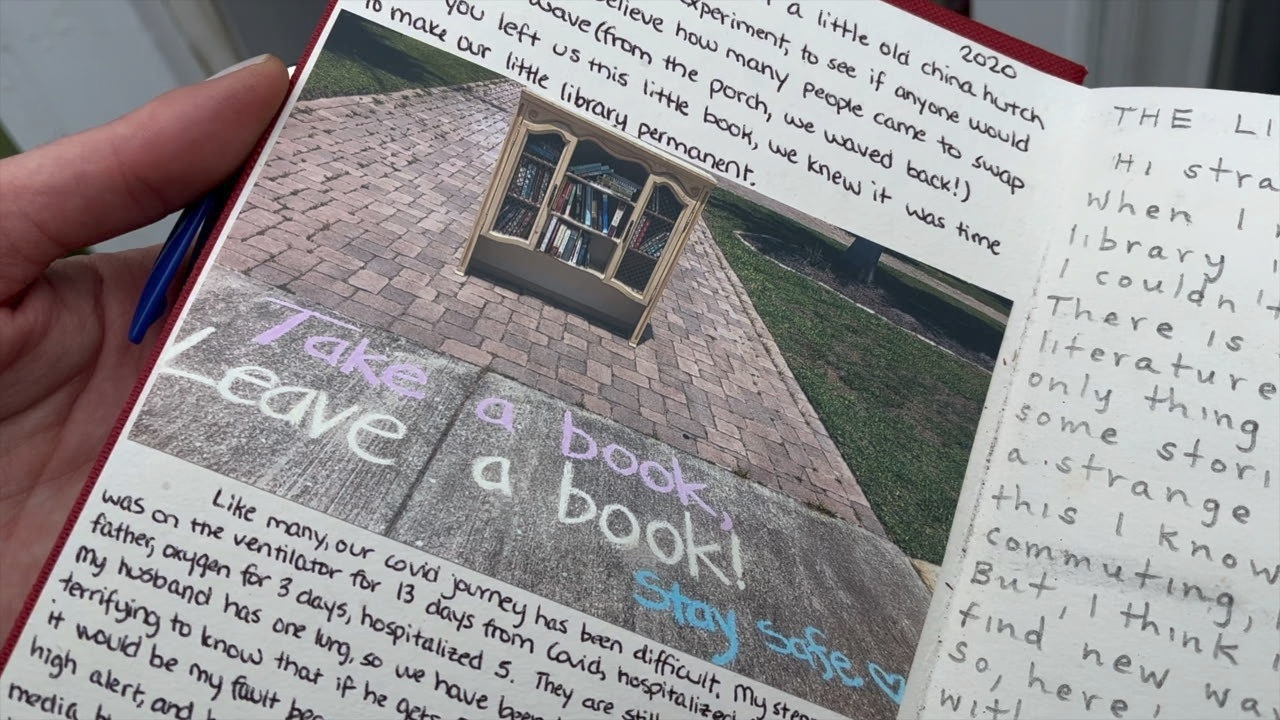 a little old china hutch
2020
experiment, to see if anyone would
believe how many people came to swap
wave (from the porch, we waved back!)
you left us this little book, we knew it was time
to make our little library permanent.
Take a book,
Leave a book!
Stay safe ♡
Like many, our covid journey has been difficult. My step
was on the ventilator for 13 days from Covid, hospitalized
father, oxygen for 3 days, hospitalized 5. They are still
my husband has one lung, so we have been
terrifying to know that if he gets
it would be my fault
high alert, and
media
THE LI
Hi stra
when I
library
I couldn't
There is
literature
only thing
some stori
a strange
this I know
commuting,
But, I think
find new wa
so, here